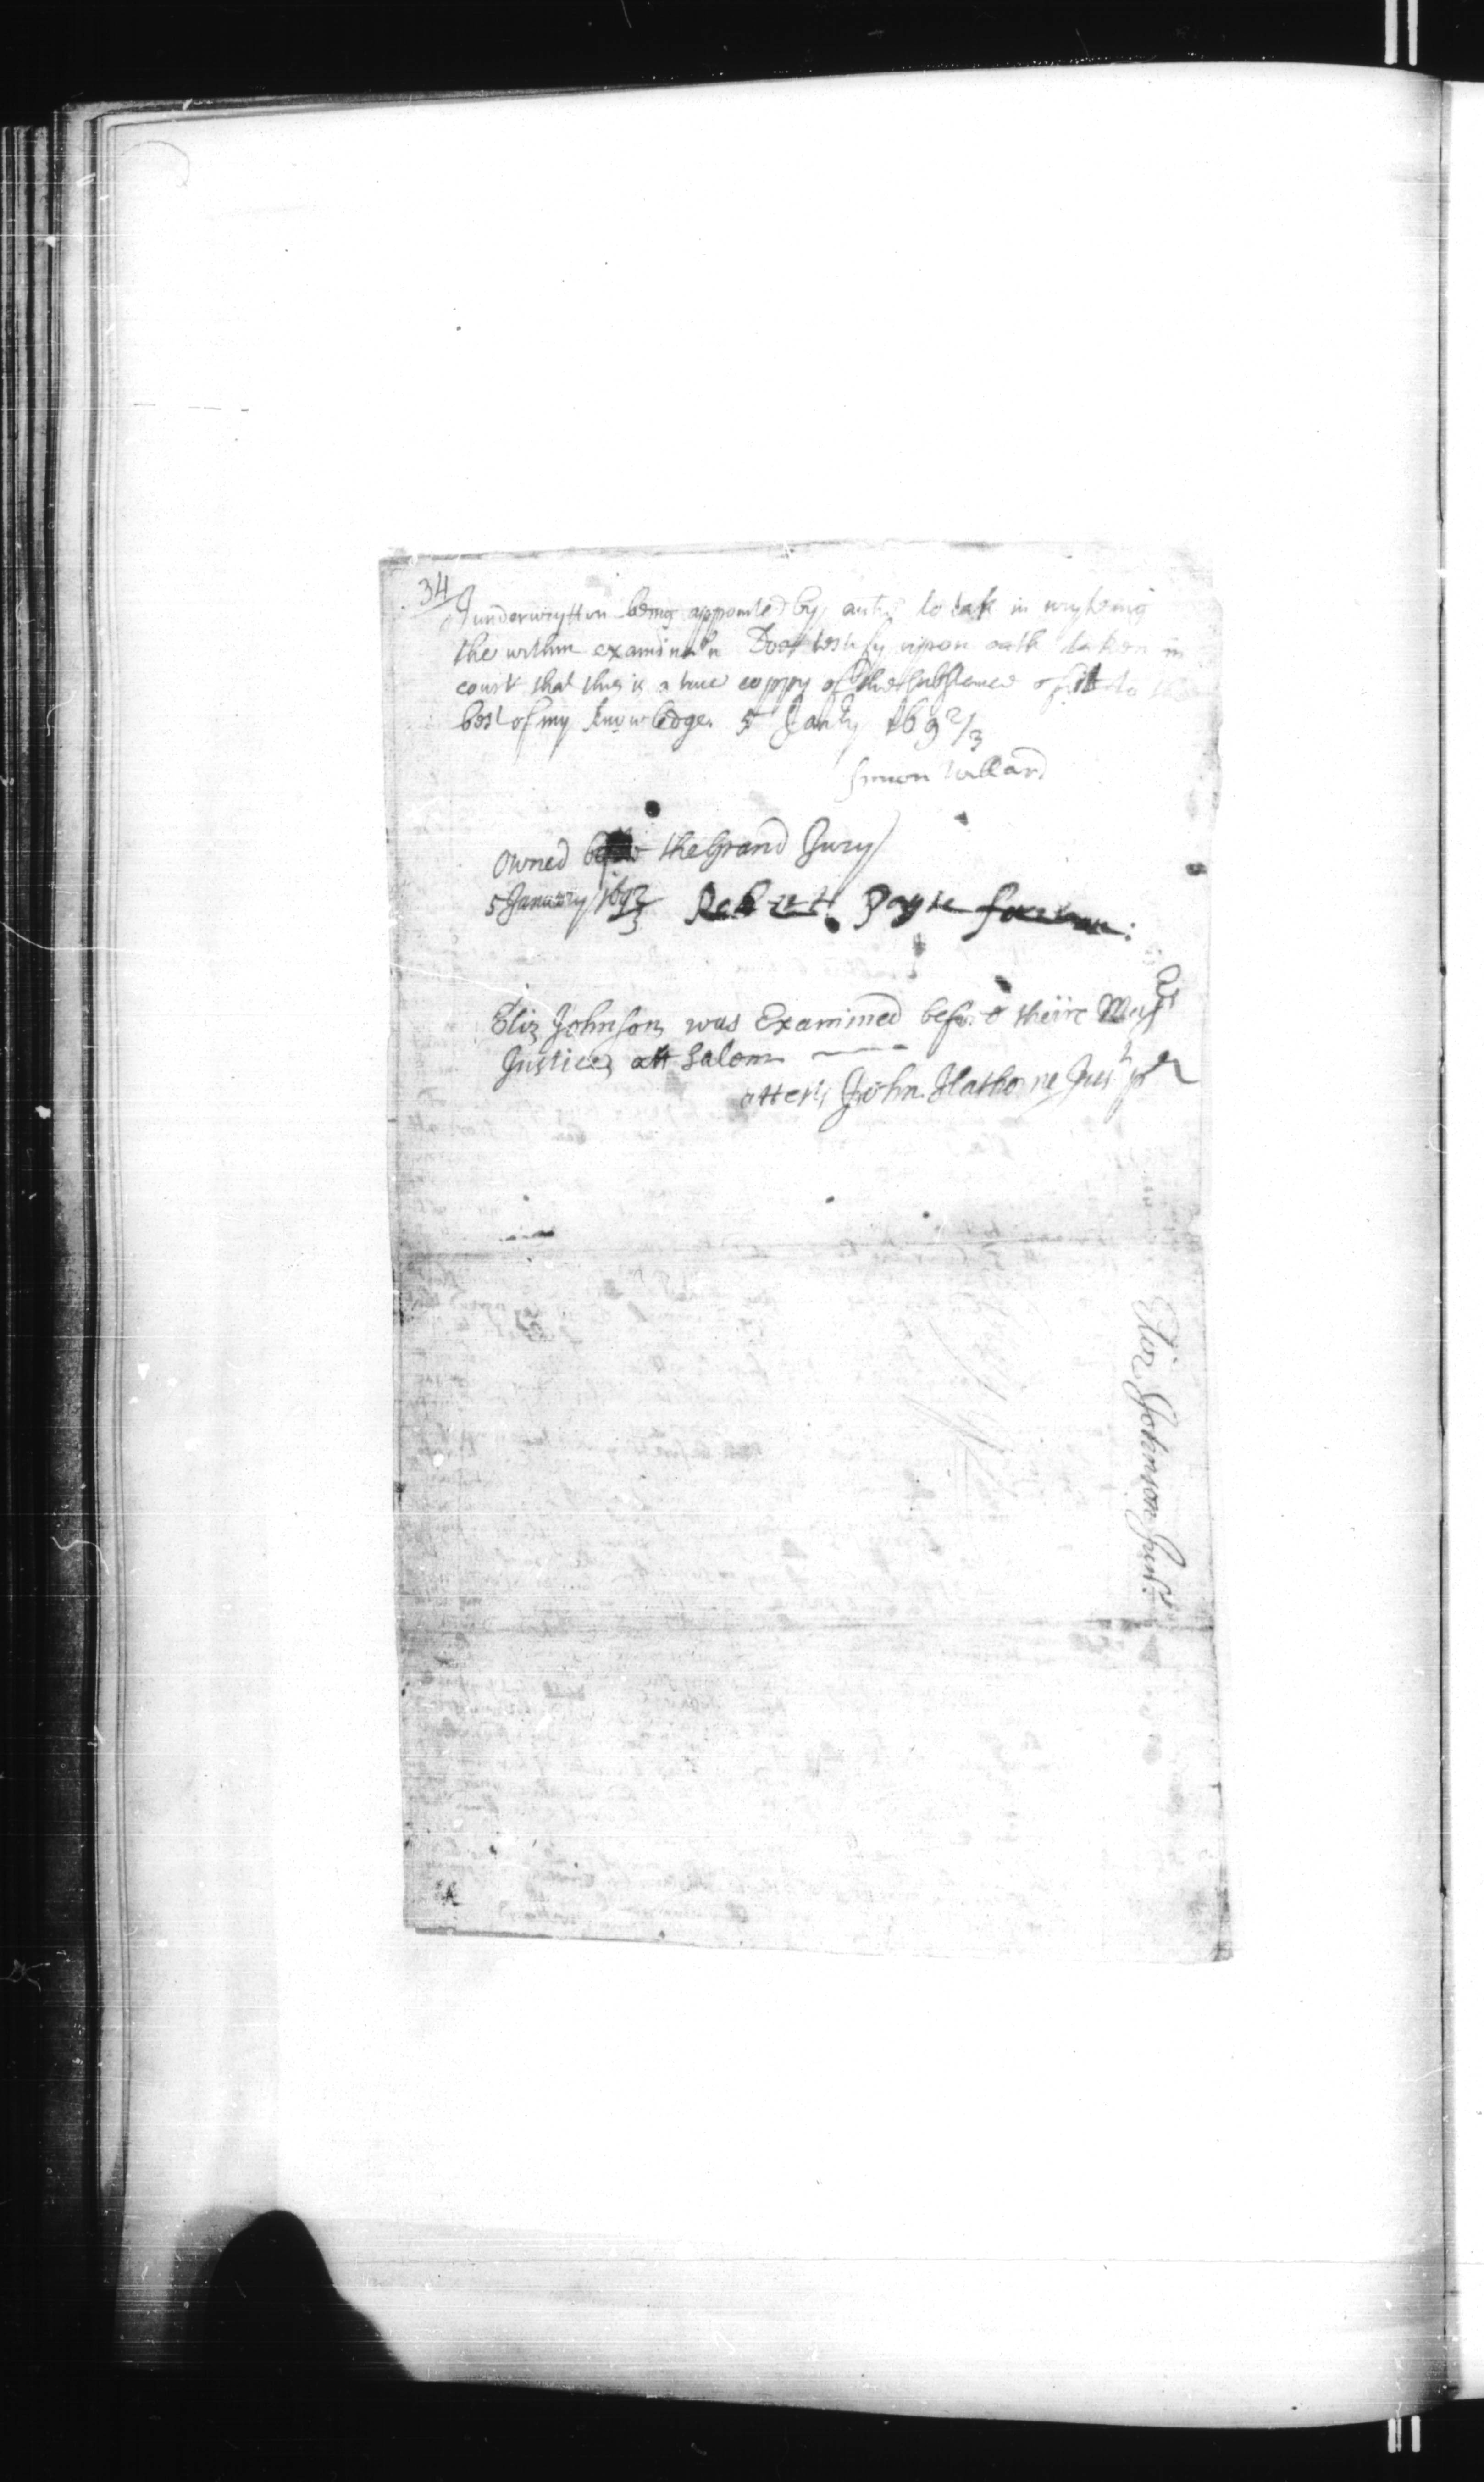 34
I underwrytten being appointed by auth to tak in wryteing
the within examinatn Doe testify upon oath taken in
court that this is a true coppy of the substance of it to the
best of my knowledge. 5 Janry 169 2/3
Simon Willard
Owned before the Grand Jury
5 January 1692/3 Robert Payne foreman:
Eliz Johnson was Examined before theire Majts
Justices att Salem
attests John Hathorne Just pr
Eliz. Johnson Junr.